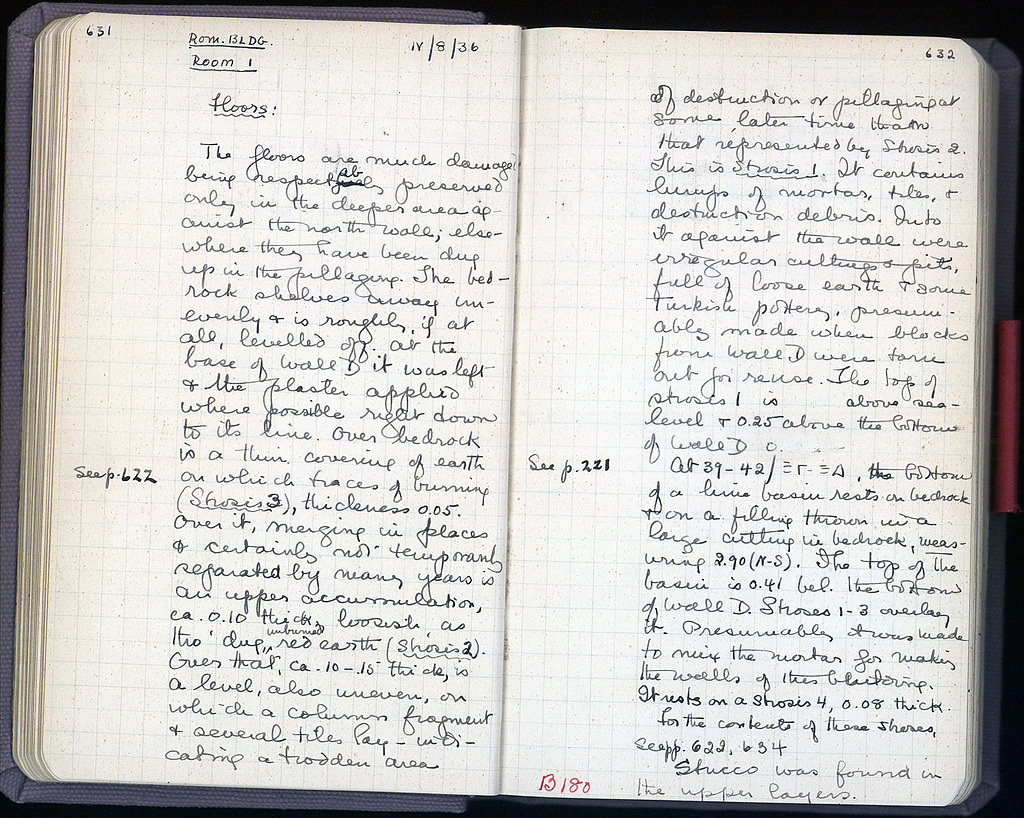 631
ROM. BLDG.
ROOM 1
IV/8/36
Floors:
The floors are much damaged
being respectably preserved
only in the deeper area ag-
ainst the north wall; else-
where they have been dug
up in the pillaging. The bed-
rock shelves away un-
evenly & is roughly, if at
all, levelled off. at the
base of Wall D it was left
& the plaster applied
where possible right down
to its line. Over bedrock
is a thin covering of earth
See p. 622
on which traces of burning
(Strosis 3), thickness 0.05.
Over it, merging in places
& certainly not temporarily
separated by many years is
an upper accumulation,
ca. 0.10 thick, looseish, as
tho' dug, unburned red earth (Strosis 2).
Over that, ca. 10-15 thick, is
a level, also uneven, on
which a column fragment
& several tiles lay - indi-
cating a trodden area
632
of destruction or pillaging at
some later time than
that represented by Strosis 2.
This is Strosis 1. It contains
lumps of mortar, tiles, &
destruction debris. Into
it against the wall were
irregular cuttings & pits,
full of loose earth & some
Turkish pottery, presum-
ably made when blocks
from Wall D were torn
out for reuse. The top of
strosis 1 is above sea-
level & 0.25 above the bottom
of Wall D
See p. 221
At 39-42/ΞΓ-ΞΔ, the bottom
of a lime basin rests on bedrock
& on a filling thrown in a
large cutting in bedrock, meas-
uring 2.90 (N-S). The top of the
basin is 0.41 bel. the bottom
of Wall D. Stroses 1-3 overlay
it. Presumably it was made
to mix the mortar for making
the walls of this building.
It rests on a Strosis 4, 0.08 thick.
For the contents of these stroses,
see pp. 622, 634
Stucco was found in
the upper layers.
B 180